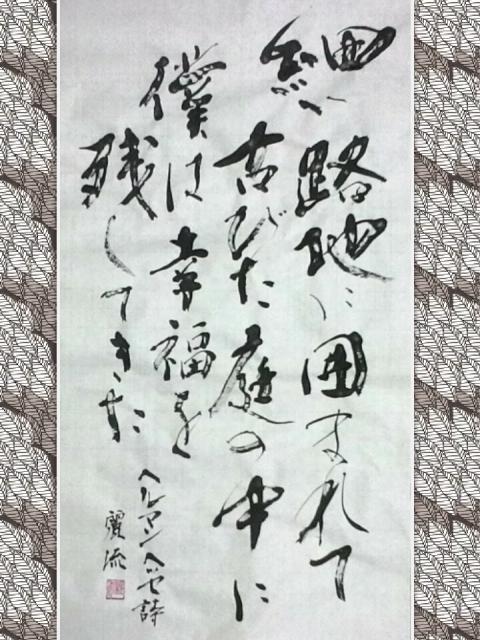 細路地に囲まれて
古びた庭の中に
僕は幸福を
残してきた
ヘルマンヘッセ詩
麗流